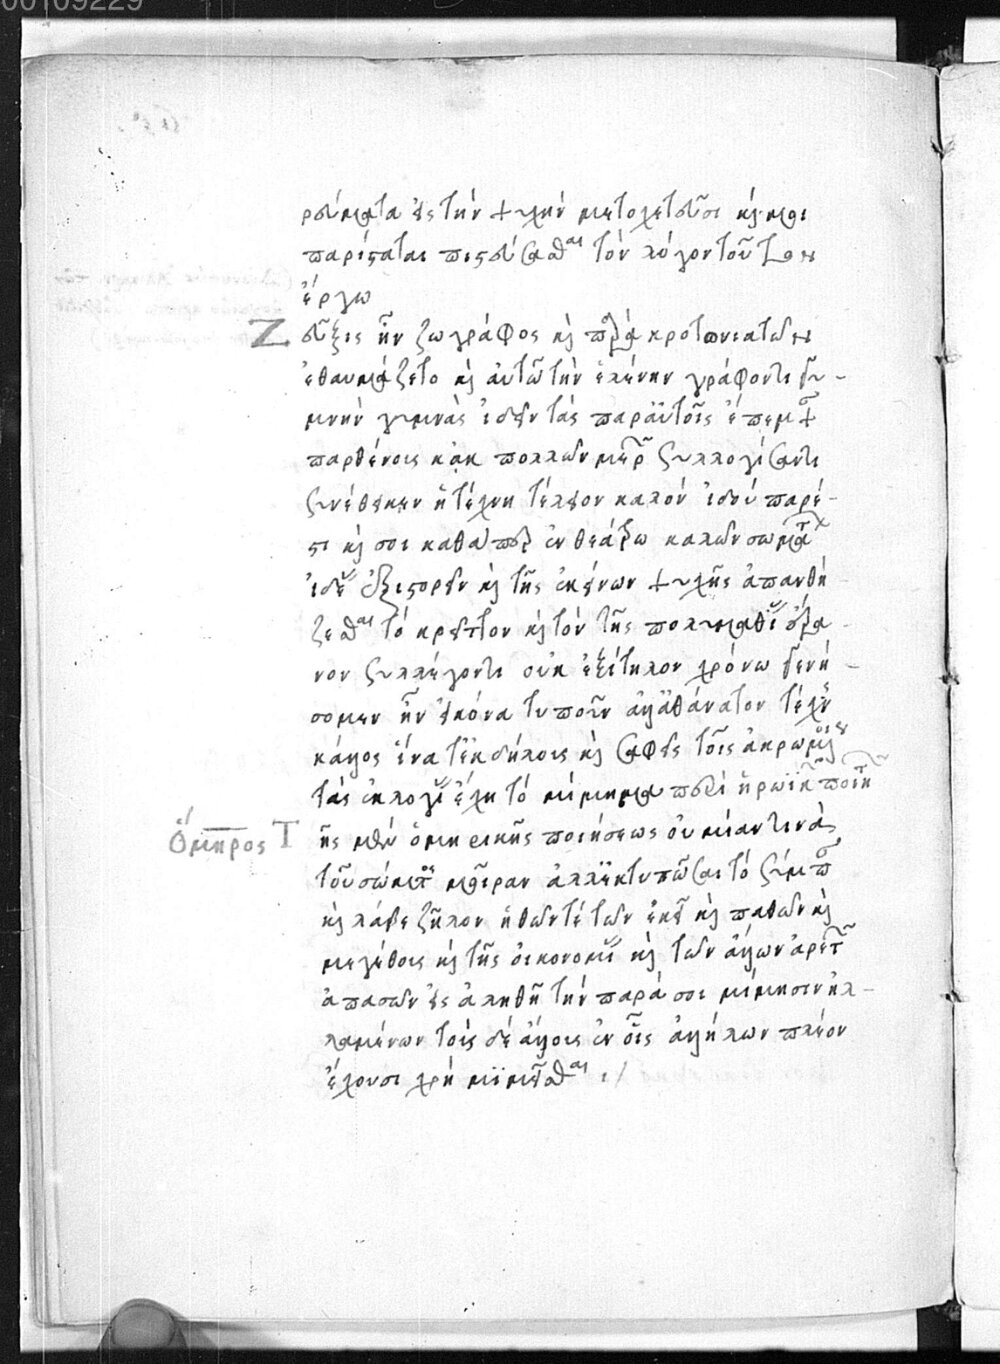 00109229
ρεύματα εἰς τὴν ψυχὴν μετοχετεῦσι κἀμοι
παρίσταται πιστώσασθαι τὸν λόγον τοῦτον
ἔργω
Ζεῦξις ἦν ζωγράφος καὶ παρὰ κροτωνιατῶν
ἐθαυμάζετο καὶ αὐτῶ τὴν ἑλένην γράφοντι γυ-
μνὴν γυμνὰς ἰδεῖν τὰς παρ' αὐτοῖς ἔπεμψαν
παρθένους κἀκ πολλῶν μερῶν συλλογίσαντι
συνέθηκεν ἡ τέχνη τέλειον καλόν ἰδού πάρε-
στι καὶ σοι καθάπερ ἐν θεάτρω καλῶν σωμάτων
ἰδέας ἐξιστορεῖν καὶ τῆς ἐκείνων ψυχῆς ἀπανθί-
ζεσθαι τὸ κρεῖττον καὶ τὸν τῆς πολυμαθείας ἔρα-
νον συλλέγοντι οὐκ ἐξίτηλον χρόνω γενή-
σομεν ἣν εἰκόνα τυποῦν ἀλλ' ἀθάνατον τέχνης
κάλλος ἵνα τ' ἐκδήλοις καὶ σαφεῖς τοῖς ἀκρωμένοις
τὰς ἐκλογὰς ἔχη τὸ μίμημα περὶ ἡρωϊκῆς ποιήσεως
Ὅμηρος Τῆς μὲν ὁμηρικῆς ποιήσεως οὐ μίαν τινὰ
τοῦ σώματος μοῖραν ἀλλ' ἐκτυπῶσαι τὸ σύμπαν
καὶ λάβε ζῆλον ἠθῶν τέ τῶν ἐκεῖ καὶ παθῶν καὶ
μεγέθους καὶ τῆς οἰκονομίας καὶ τῶν ἄλλων ἀρετῶν
ἁπασῶν εἰς ἀληθῆ τὴν παρά σοι μίμησιν ἠλ-
λαμένων τοὺς δὲ ἄλλους ἐν οἷς ἀλλήλων πλέον
ἔχουσι χρὴ μιμεῖσθαι